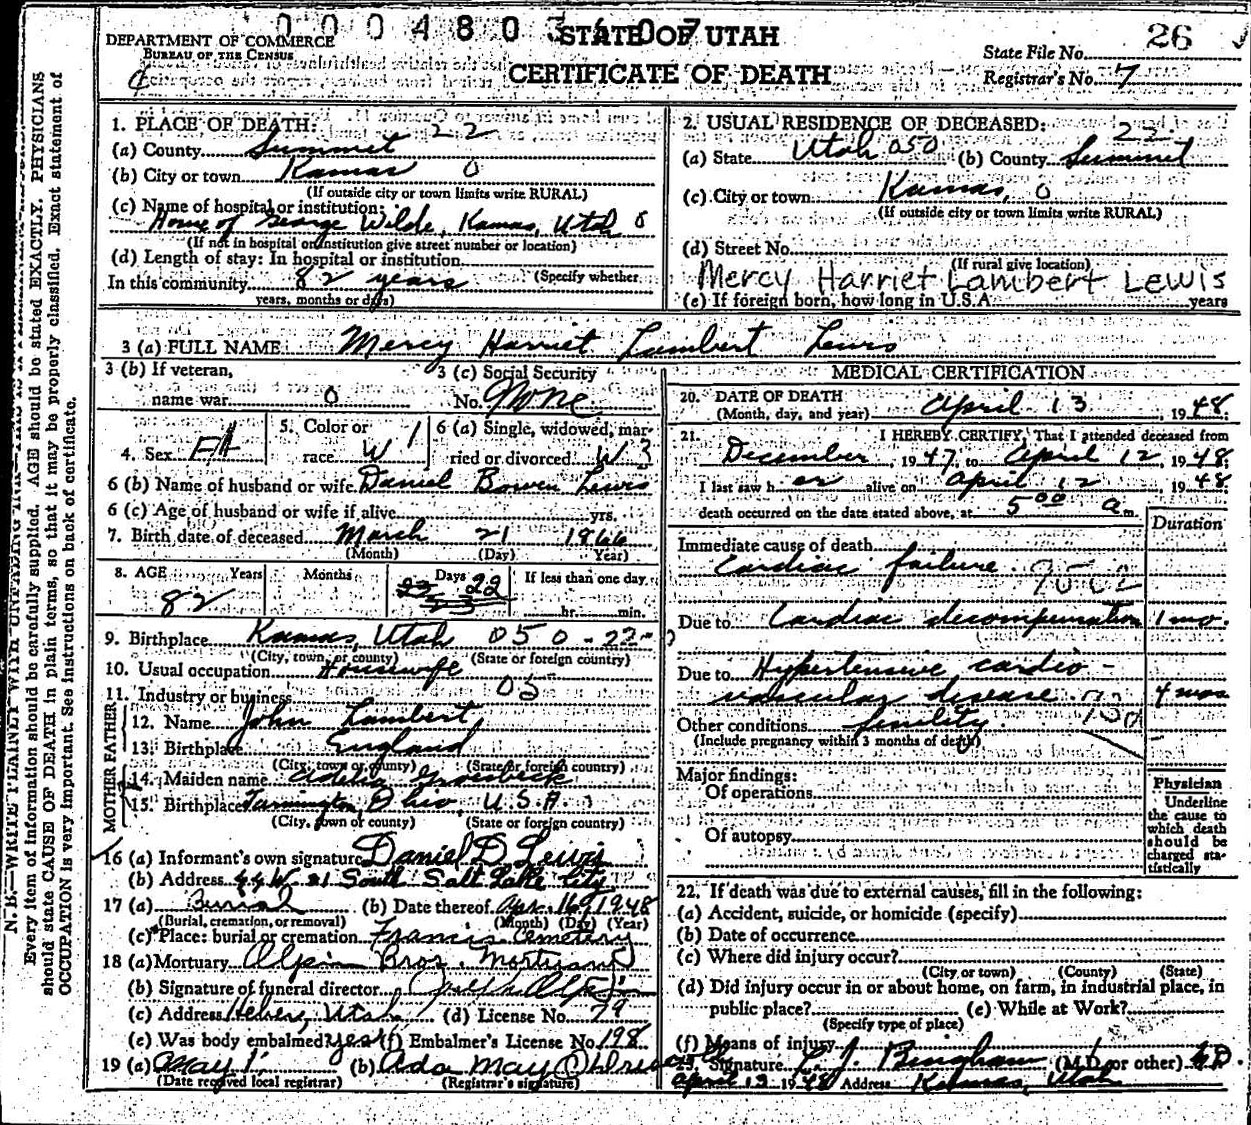 0004803407
STATE OF UTAH
CERTIFICATE OF DEATH
DEPARTMENT OF COMMERCE
BUREAU OF THE CENSUS
State File No. 26
Registrar's No. 7
1. PLACE OF DEATH: 22
(a) County Summit
(b) City or town Kamas 0
(If outside city or town limits write RURAL)
(c) Name of hospital or institution:
Home of George Wilde, Kamas, Utah 0
(If not in hospital or institution give street number or location)
(d) Length of stay: In hospital or institution
In this community 82 years (Specify whether
years, months or days)
2. USUAL RESIDENCE OF DECEASED: 22
(a) State Utah 050 (b) County Summit
(c) City or town Kamas, 0
(If outside city or town limits write RURAL)
(d) Street No.
(If rural give location)
Mercy Harriet Lambert Lewis
(e) If foreign born, how long in U.S.A. years
3 (a) FULL NAME Mercy Harriet Lambert Lewis
3 (b) If veteran,
name war 0
3 (c) Social Security
No. None
4. Sex
5. Color or
race W 1
6 (a) Single, widowed, mar-
ried or divorced W 3
6 (b) Name of husband or wife Daniel Bowen Lewis
6 (c) Age of husband or wife if alive yrs.
7. Birth date of deceased March 21 1866
(Month) (Day) (Year)
8. AGE Years Months Days If less than one day
82 22
23
hr. min.
9. Birthplace Kamas, Utah 050-22
(City, town, or county) (State or foreign country)
10. Usual occupation Housewife
11. Industry or business 05
FATHER
12. Name John Lambert
13. Birthplace England
(City, town or county) (State or foreign country)
MOTHER
14. Maiden name Adelia Groesbeck
15. Birthplace Ohio U.S.A.
(City, town or county) (State or foreign country)
16 (a) Informant's own signature Daniel D Lewis
(b) Address 44 W. 21 South Salt Lake City
17 (a) Burial (b) Date thereof Apr. 16, 1948
(Burial, cremation, or removal) (Month) (Day) (Year)
(c) Place: burial or cremation Francis Cemetery
18 (a) Mortuary Olpin Bros. Mortuary
(b) Signature of funeral director Olpin
(c) Address Heber, Utah (d) License No. 79
(e) Was body embalmed? yes (f) Embalmer's License No. 198
19 (a) May 1 (b) Ada May
(Date received local registrar) (Registrar's signature)
MEDICAL CERTIFICATION
20. DATE OF DEATH
(Month, day, and year) April 13, 1948.
21. I HEREBY CERTIFY, That I attended deceased from
December, 1947, to April 12, 1948.
I last saw her alive on April 12, 1948
death occurred on the date stated above, at 5 00 a m.
Duration
Immediate cause of death
Cardiac failure
Due to Cardiac decompensation 1 mo.
Due to Hypertensive cardio-
vascular disease 4 mos
Other conditions Senility
(Include pregnancy within 3 months of death)
Major findings:
Of operations
Of autopsy
Physician
Underline
the cause to
which death
should be
charged sta-
tistically
22. If death was due to external causes, fill in the following:
(a) Accident, suicide, or homicide (specify)
(b) Date of occurrence
(c) Where did injury occur?
(City or town) (County) (State)
(d) Did injury occur in or about home, on farm, in industrial place, in
public place? (e) While at Work?
(Specify type of place)
(f) Means of injury
23. Signature C. J. Bingham (M.D. or other) M.D.
April 13 1948 Address Kamas, Utah
Every item of information should be carefully supplied. AGE should be stated EXACTLY. PHYSICIANS
should state CAUSE OF DEATH in plain terms, so that it may be properly classified. Exact statement of
OCCUPATION is very important. See instructions on back of certificate.